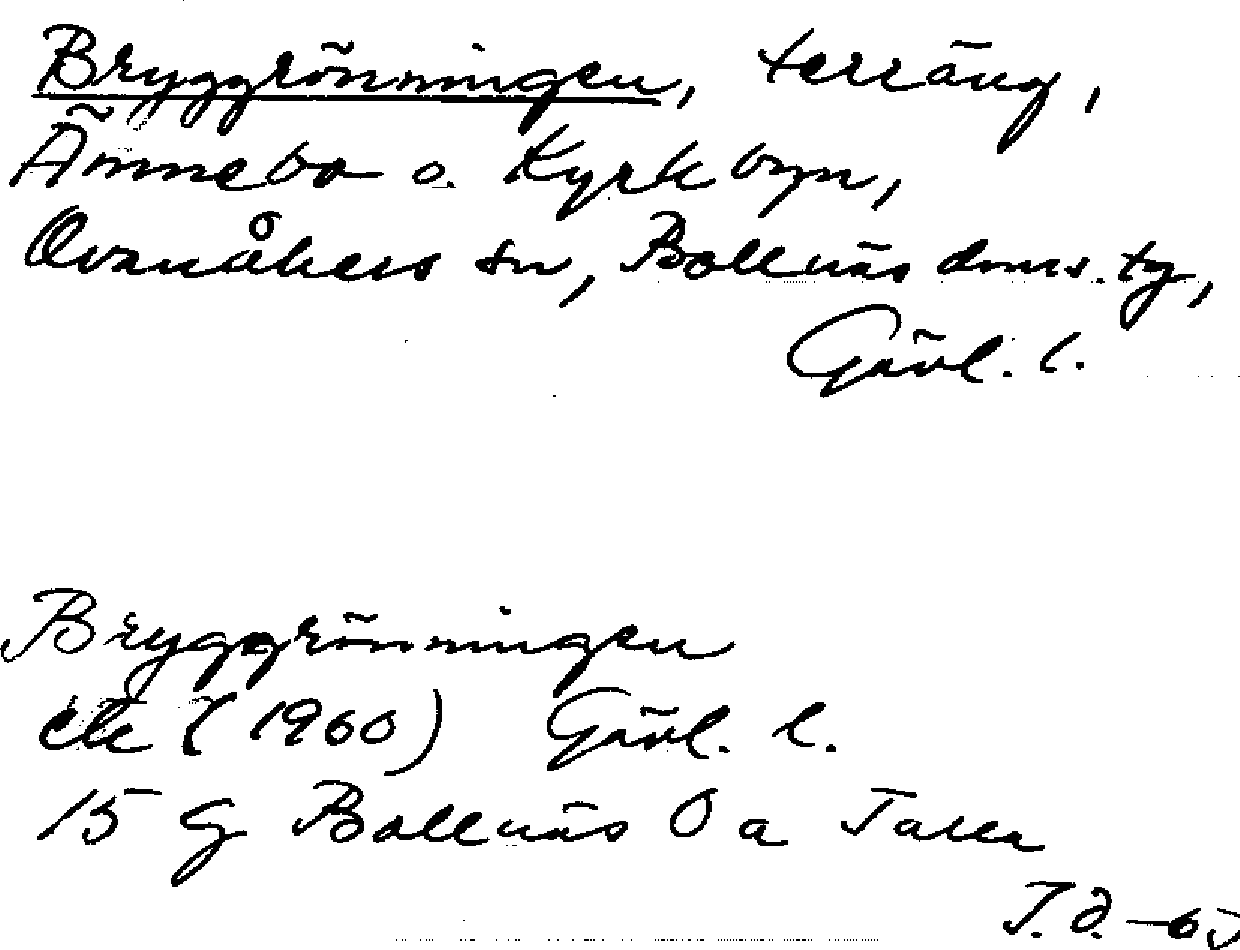 Bryggrönningen, terräng,
Ämnebo o. Kyrkbyn,
Ovanåkers sn, Bollnäs doms. tg,
Gävl. l.
Bryggrönningen
ek (1960) Gävl. l.
15 G Bollnäs Ö a